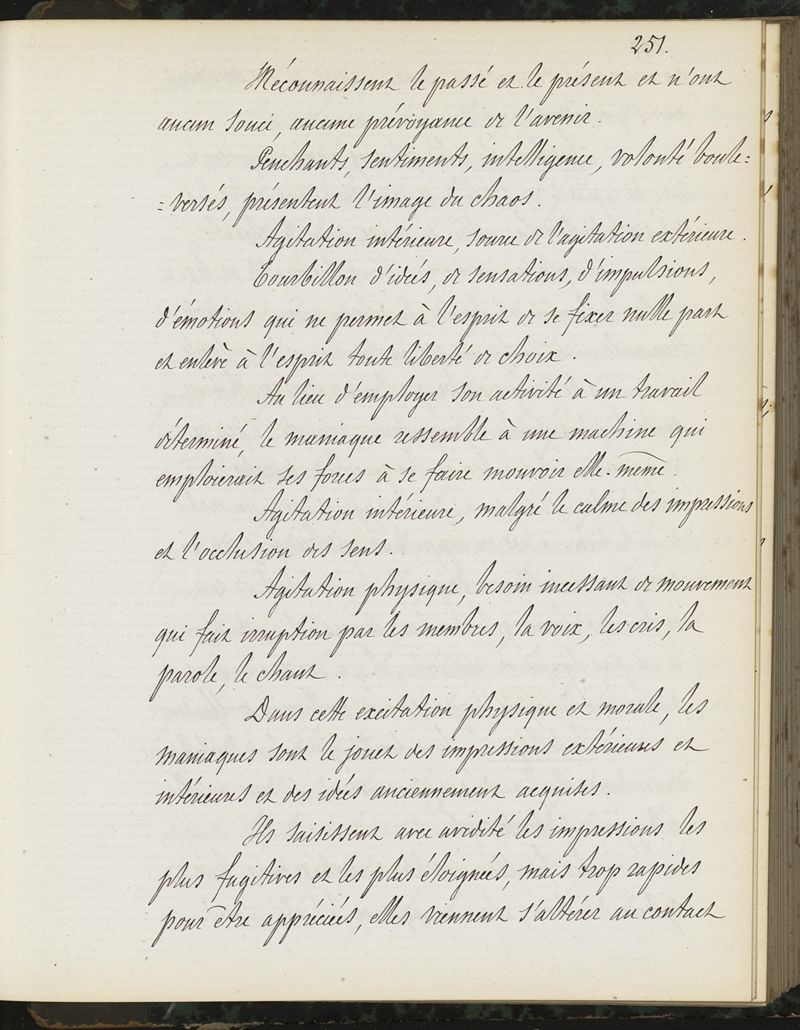 251.
Méconnaissent le passé et le présent et n'ont
aucun souci, aucune prévoyance de l'avenir.
Penchants, sentiments, intelligence, volonté boule=
=versés, présentent l'image du chaos.
Agitation intérieure, source de l'agitation extérieure.
Tourbillon d'idées, de sensations, d'impulsions,
d'émotions qui ne permet à l'esprit de se fixer nulle part
et enlève à l'esprit toute liberté de choix.
Au lieu d'employer son activité à un travail
déterminé, le maniaque ressemble à une machine qui
emploierait ses forces à se faire mouvoir elle-même.
Agitation intérieure, malgré le calme des impressions
et l'occlusion des sens.
Agitation physique, besoin incessant de mouvement
qui fait irruption par les membres, la voix, les cris, la
parole, le chant.
Dans cette excitation physique et morale, les
maniaques sont le jouet des impressions extérieures et
intérieures et des idées anciennement acquises.
Ils saisissent avec avidité les impressions les
plus fugitives et les plus éloignées, mais trop rapides
pour être appréciées, elles viennent s'altérer au contact